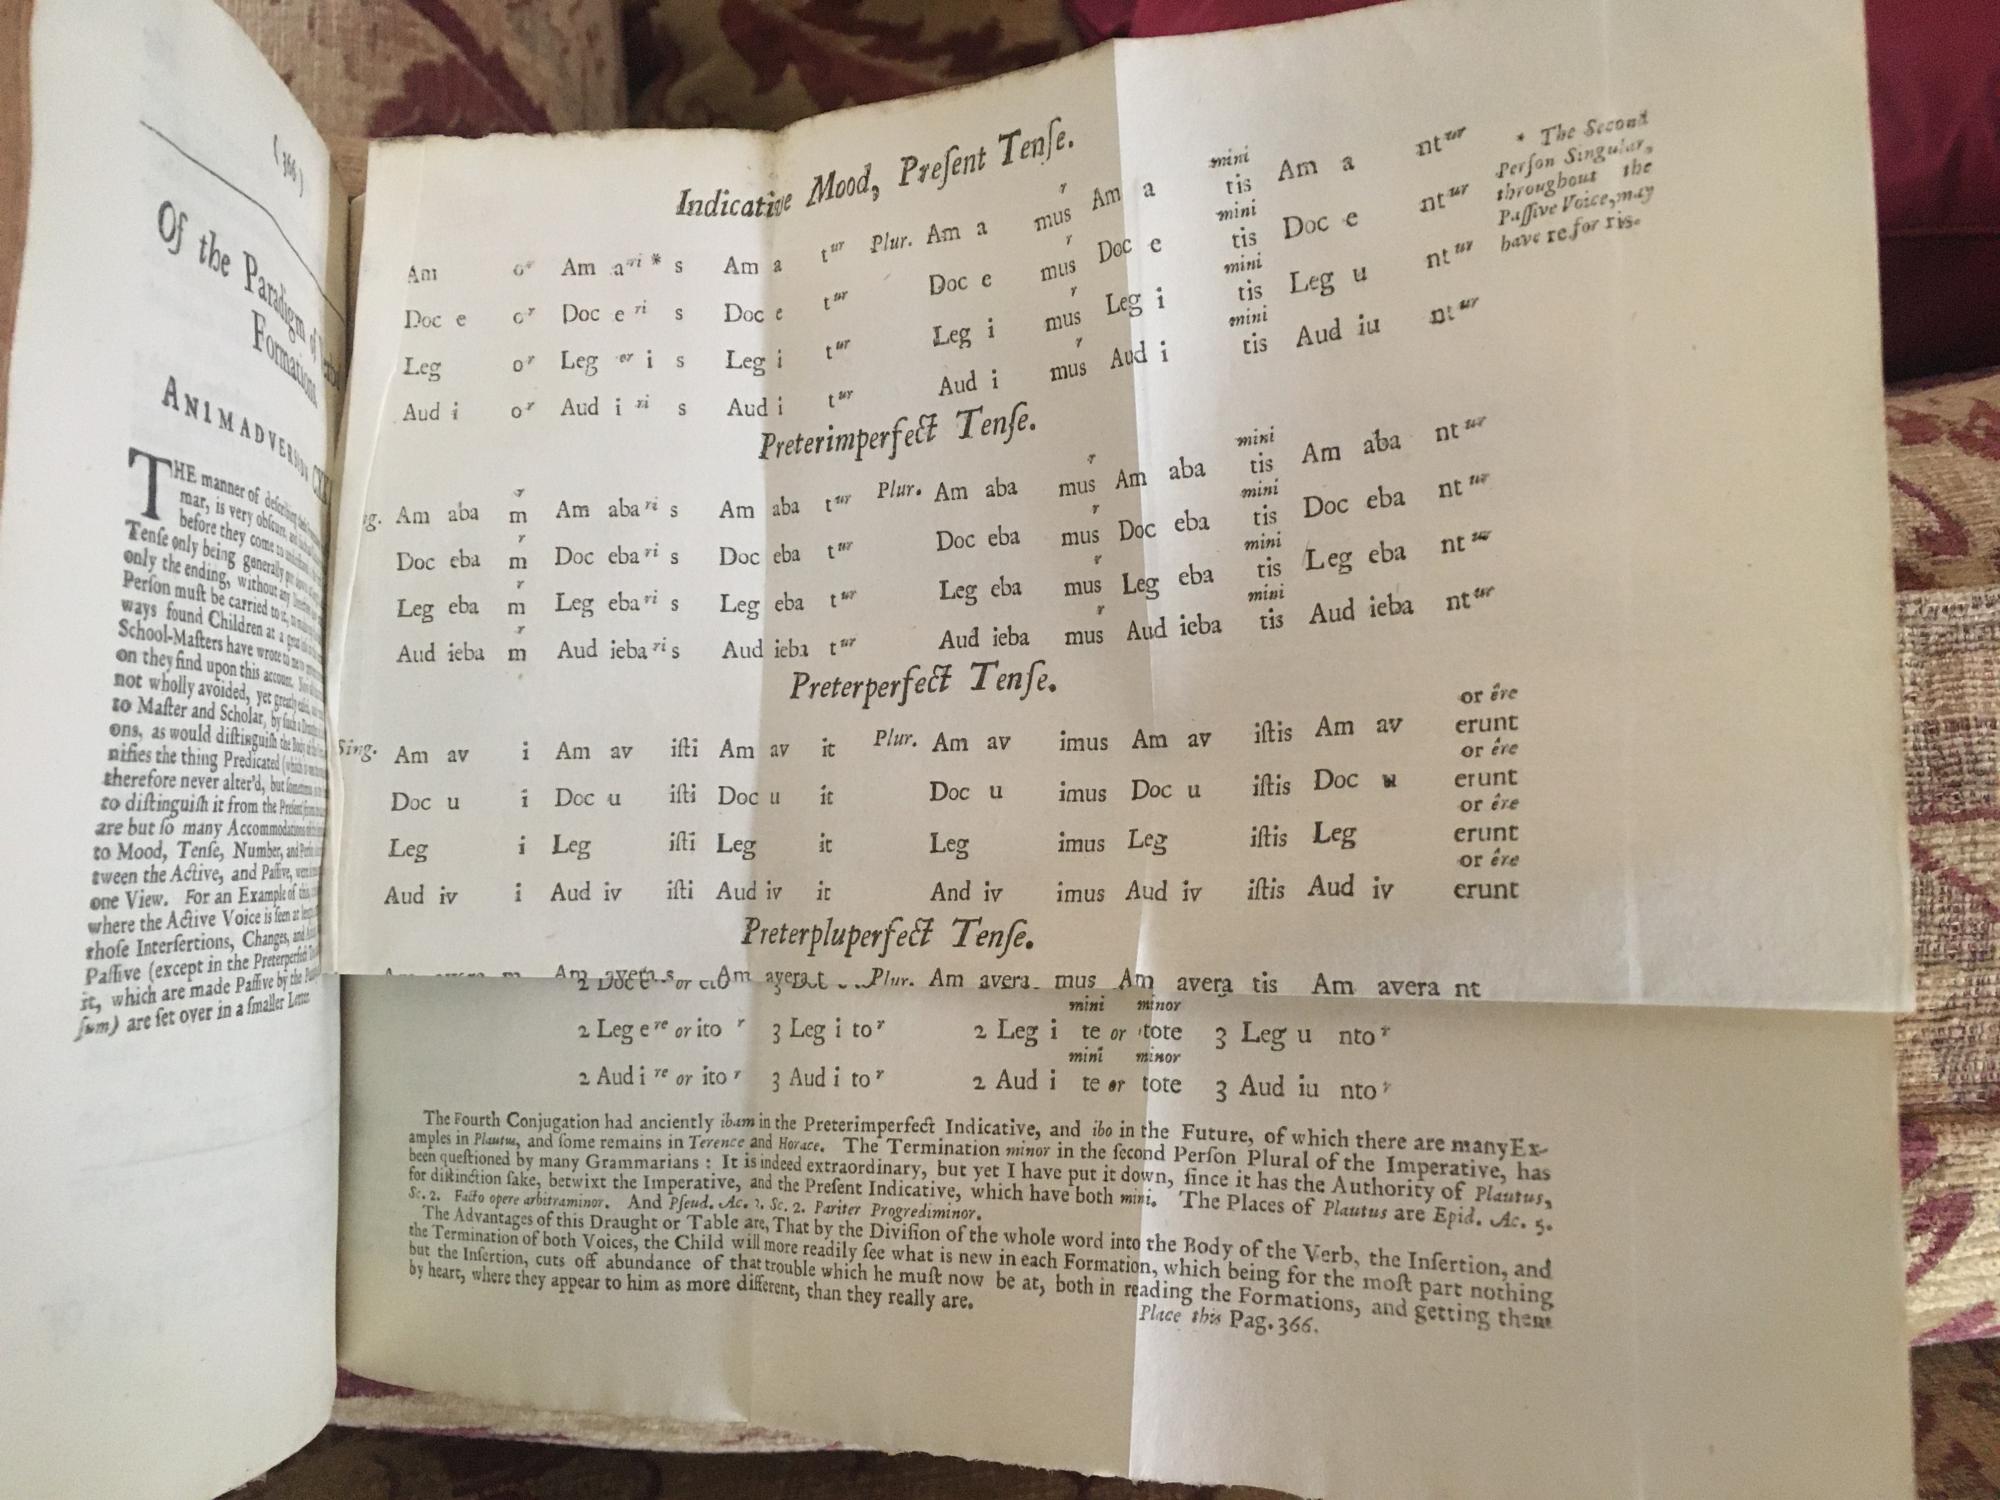 ( 366 )
Of the Paradigm of Verbal
Formations
ANIMADVERSION
THE manner of describing
mar, is very obscure, and
before they come to
Tenſe only being generally
only the ending, without any
Perſon muſt be carried to it,
ways found Children at a
School-Maſters have wrote to me
on they find upon this account.
not wholly avoided, yet greatly
to Maſter and Scholar, by ſuch a
ons, as would diſtinguiſh the Body of the
nifies the thing Predicated (which is
therefore never alter'd, but ſometimes
to diſtinguiſh it from the Preſent
are but ſo many Accommodations
to Mood, Tenſe, Number, and
tween the Active, and Paſſive,
one View. For an Example of this,
where the Active Voice is ſeen at
thoſe Interſertions, Changes, and
Paſſive (except in the Preterperfect
it, which are made Paſſive by the
ſum) are ſet over in a ſmaller Letter.
Indicative Mood, Preſent Tenſe.
Am or Am a ri * s Am a tur Plur. Am a mus r Am a tis mini Am a nt ur
Doc e or Doc e ri s Doc e tur Doc e mus r Doc e tis mini Doc e nt ur
Leg or Leg er i s Leg i tur Leg i mus r Leg i tis mini Leg u nt ur
Aud i or Aud i ri s Aud i tur Aud i mus r Aud i tis mini Aud iu nt ur
* The Second
Perſon Singular,
throughout the
Paſſive Voice, may
have re for ris.
Preterimperfect Tenſe.
Am aba m r Am aba ri s Am aba t ur Plur. Am aba mus r Am aba tis mini Am aba nt ur
Doc eba m r Doc eba ri s Doc eba t ur Doc eba mus r Doc eba tis mini Doc eba nt ur
Leg eba m r Leg eba ri s Leg eba t ur Leg eba mus r Leg eba tis mini Leg eba nt ur
Aud ieba m r Aud ieba ri s Aud ieba t ur Aud ieba mus r Aud ieba tis mini Aud ieba nt ur
Preterperfect Tenſe.
or êre
Sing. Am av i Am av iſti Am av it Plur. Am av imus Am av iſtis Am av erunt
or êre
Doc u i Doc u iſti Doc u it Doc u imus Doc u iſtis Doc u erunt
or êre
Leg i Leg iſti Leg it Leg imus Leg iſtis Leg erunt
or êre
Aud iv i Aud iv iſti Aud iv it And iv imus Aud iv iſtis Aud iv erunt
Preterpluperfect Tenſe.
Am avera m Am avera s Am avera t Plur. Am avera mus Am avera tis Am avera nt
mini minor
2 Leg e re or ito r 3 Leg i to r 2 Leg i te or tote 3 Leg u nto r
mini minor
2 Aud i re or ito r 3 Aud i to r 2 Aud i te or tote 3 Aud iu nto r
The Fourth Conjugation had anciently ibam in the Preterimperfect Indicative, and ibo in the Future, of which there are many Ex-
amples in Plautus, and ſome remains in Terence and Horace. The Termination minor in the ſecond Perſon Plural of the Imperative, has
been queſtioned by many Grammarians : It is indeed extraordinary, but yet I have put it down, ſince it has the Authority of Plautus,
for diſtinction ſake, betwixt the Imperative, and the Preſent Indicative, which have both mini. The Places of Plautus are Epid. Ac. 5.
Sc. 2. Facto opere arbitraminor. And Pſeud. Ac. 2. Sc. 2. Pariter Progrediminor.
The Advantages of this Draught or Table are, That by the Diviſion of the whole word into the Body of the Verb, the Inſertion, and
the Termination of both Voices, the Child will more readily ſee what is new in each Formation, which being for the moſt part nothing
but the Inſertion, cuts off abundance of that trouble which he muſt now be at, both in reading the Formations, and getting them
by heart, where they appear to him as more different, than they really are.
Place this Pag. 366.